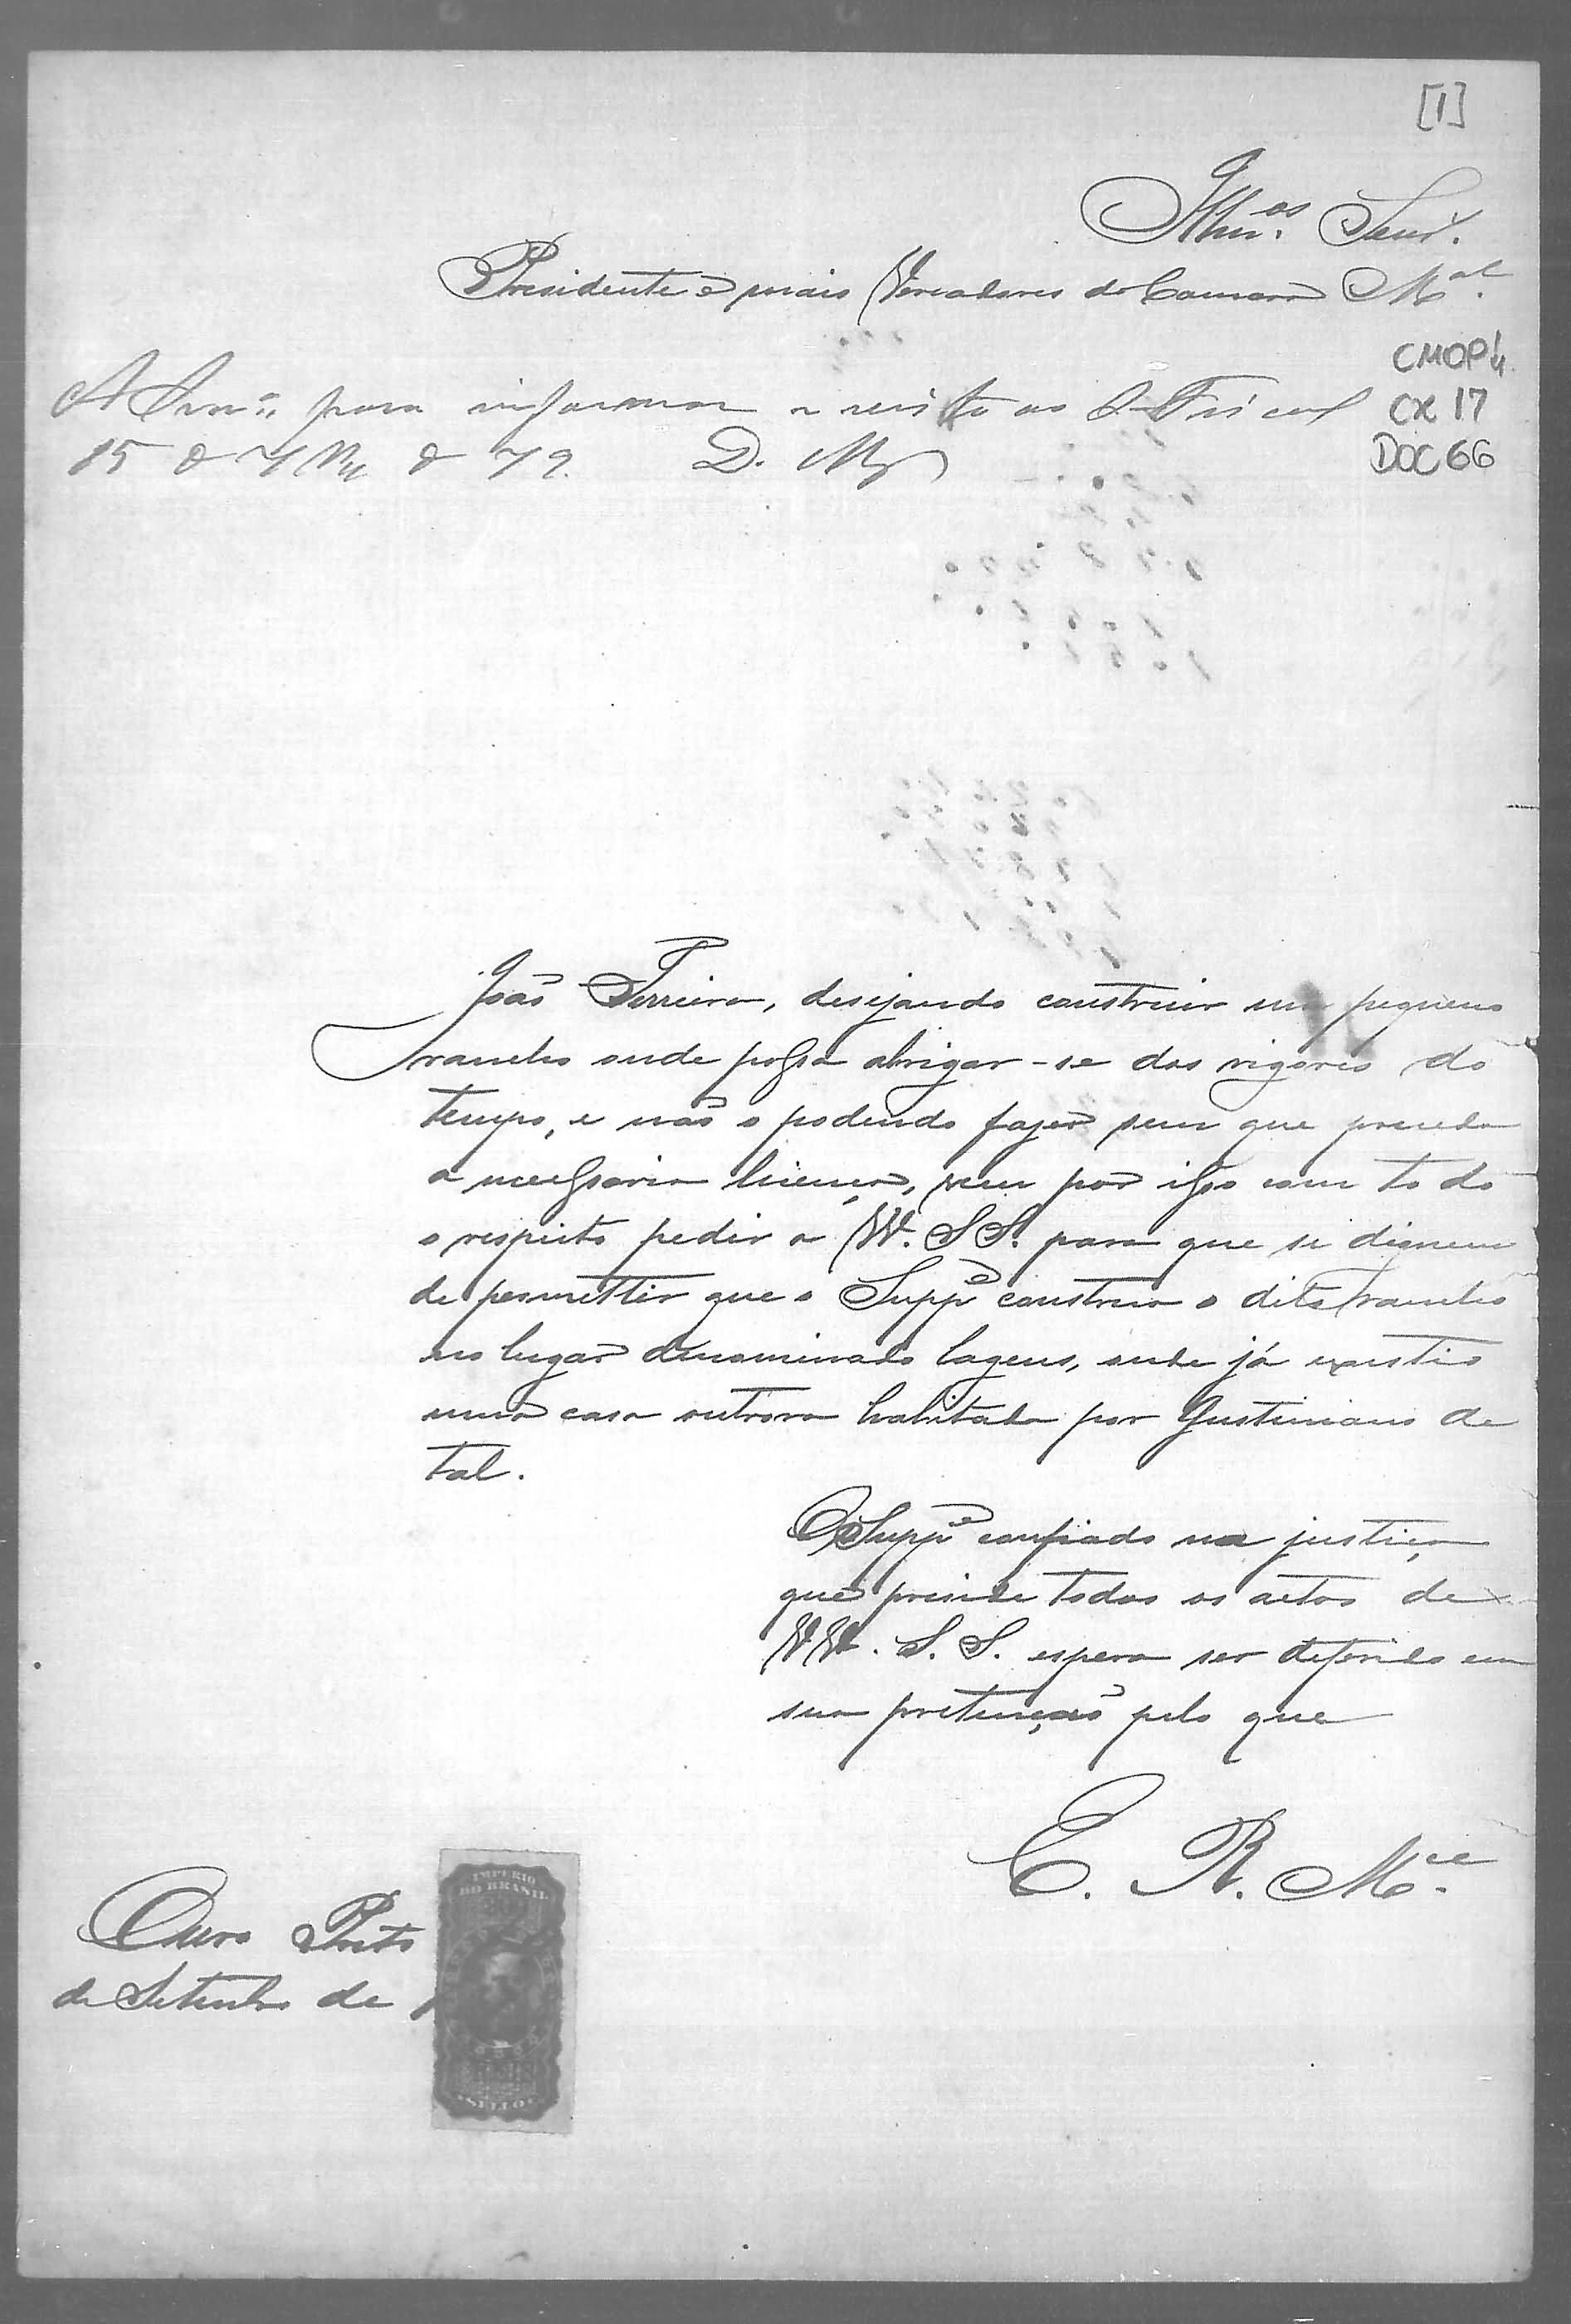 [1]
Illm.os Senr.
Presidente e mais Vereadores da Camara M.al
CMOP 4
CX 17
DOC 66
para informar
15 de 7br de 79. D. M
João Ferreira, desejando construir um pequeno
rancho onde possa abrigar-se dos rigores do
tempo, e não o podendo fazer sem que preceda
a necessaria licença, vem por isso com todo
o respeito pedir a VV. SS. para que se dignem
de permittir que o Supp.e construa o dito rancho
no lugar denominado Lagens, onde já existio
uma casa outrora habitada por Justiniano de
tal.
O Supp.e confiado na justiça
que preside todos os actos de
VV. S. S. espera ser deferido em
sua pretenção pelo que
E. R. M.ce
Ouro Preto
de Setembro de 1
IMPERIO
DO BRASIL
SELLO